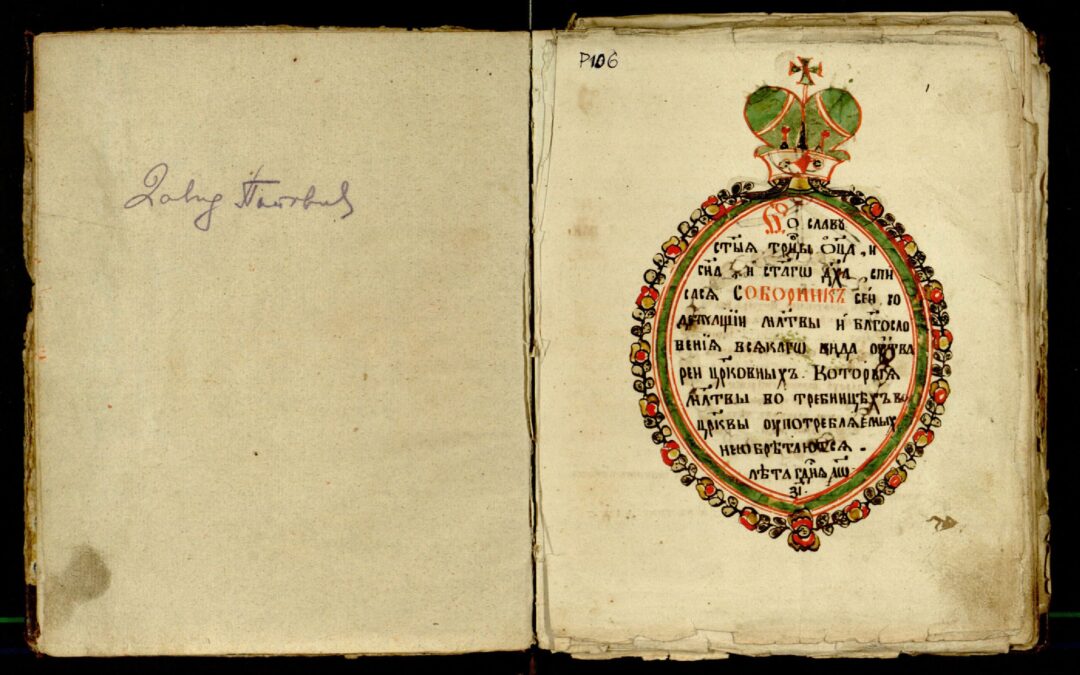 Давид Поповић
P106
1
Во славу
ст҃ыѧ трⷪ҇цы ѻц҃а, и
сн҃а, и ст҃агѡ дх҃а спи
сасѧ Соборникъ сей со
держащїи мл҃твы и блгⷭ҇осло
венїѧ всѧкагѡ вида ѹтва
рей цр҃ковныхъ. Которыѧ
мл҃твы во требницѣхъ во
цр҃квы ѹпотреблѧемых
необрѣтаютсѧ
лѣта гдⷭ҇нѧ
зı